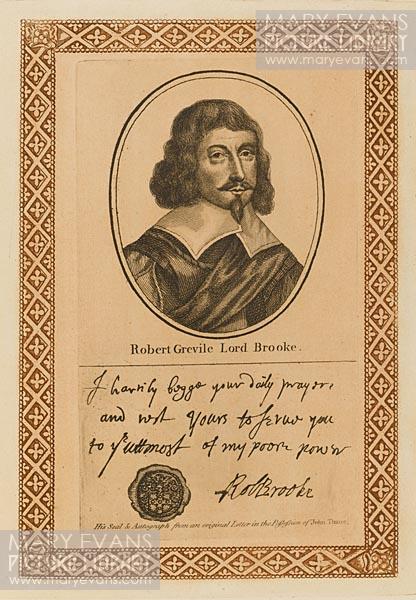 MARY EVANS
PICTURE LIBRARY
www.maryevans.com
Robert Grevile Lord Brooke.
I hartily begge your daily prayers
and rest Yours to serue you
to yᵉ uttmost of my poore power
RobBrooke
His Seal & Autograph from an original Letter in the Possession of John Thane.
MARY EVANS
PICTURE LIBRARY
www.maryevans.com